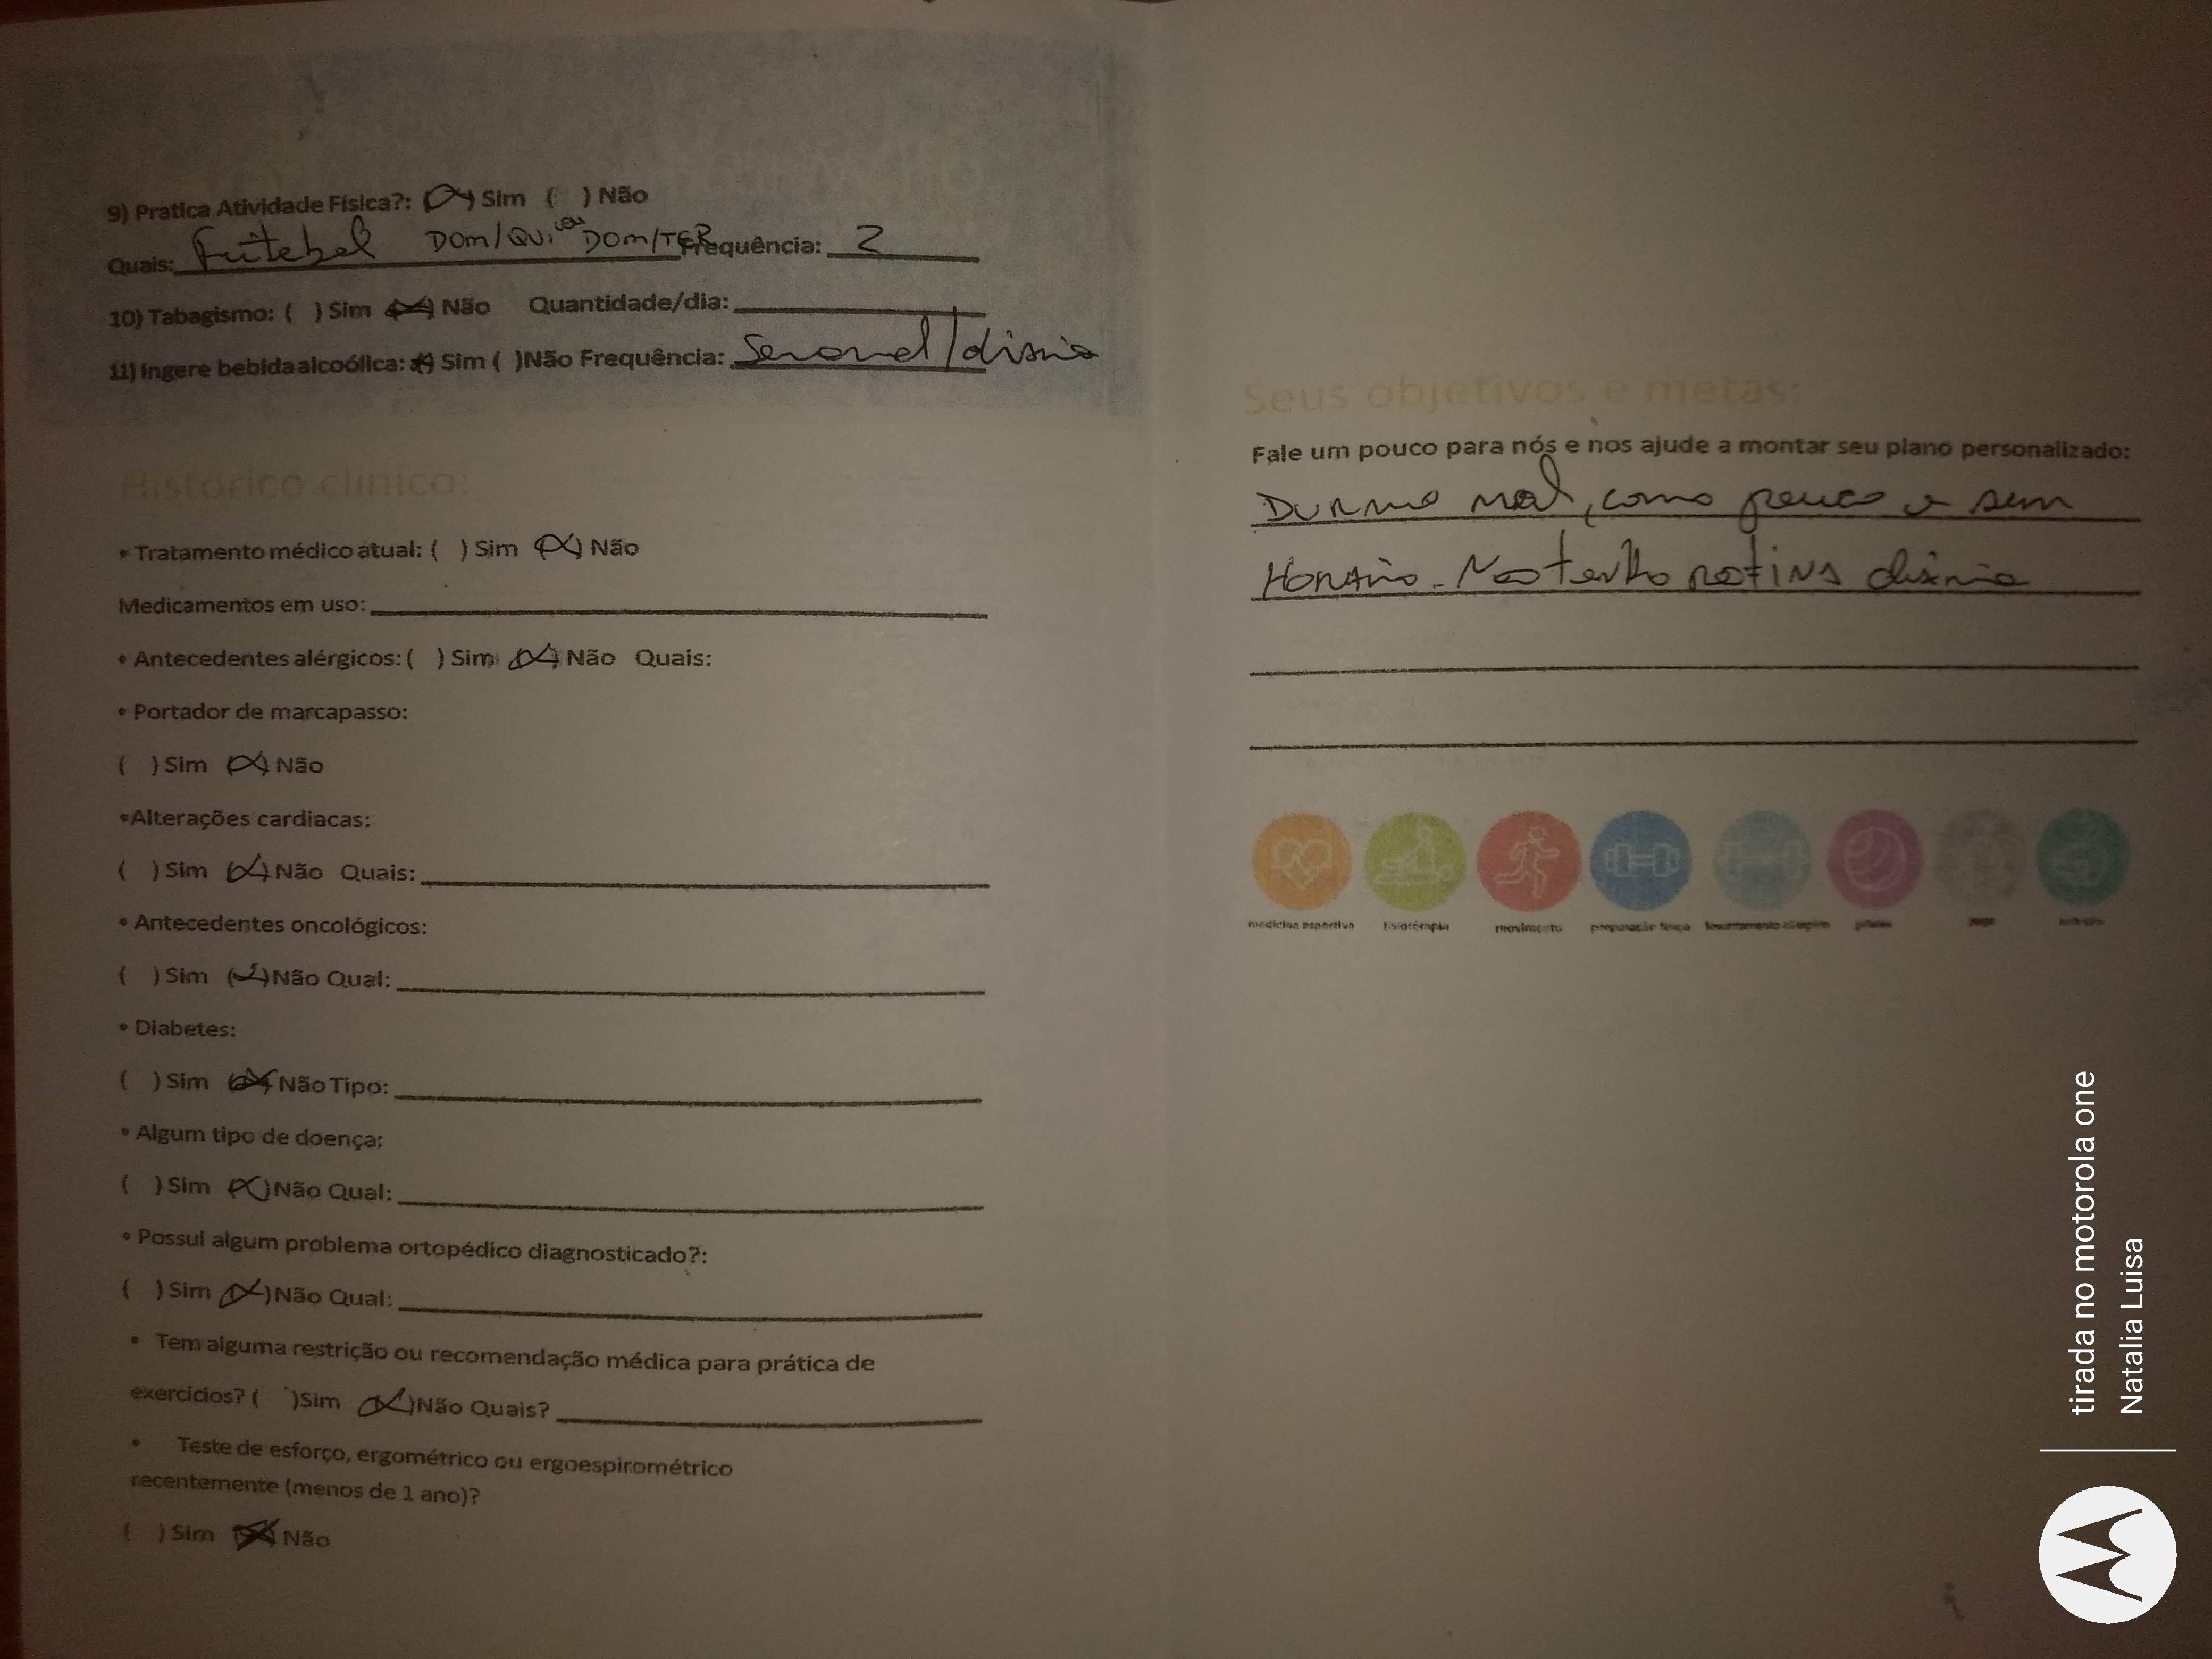 9) Pratica Atividade Física?: (X) Sim ( ) Não
Quais: Futebol DOM/QUI ou DOM/TER Frequência: 2
10) Tabagismo: ( ) Sim (X) Não Quantidade/dia:
11) Ingere bebida alcoólica: (X) Sim ( )Não Frequência: Semanal/diária
Historico clinico:
• Tratamento médico atual: ( ) Sim (X) Não
Medicamentos em uso:
• Antecedentes alérgicos: ( ) Sim (X) Não Quais:
• Portador de marcapasso:
( ) Sim (X) Não
•Alterações cardiacas:
( ) Sim (X) Não Quais:
• Antecedentes oncológicos:
( ) Sim (X)Não Qual:
• Diabetes:
( ) Sim (X) Não Tipo:
• Algum tipo de doença:
( ) Sim (X)Não Qual:
• Possui algum problema ortopédico diagnosticado?:
( ) Sim (X)Não Qual:
• Tem alguma restrição ou recomendação médica para prática de
exercícios? ( )Sim (X)Não Quais?
• Teste de esforço, ergométrico ou ergoespirométrico
recentemente (menos de 1 ano)?
( ) Sim (X) Não
Seus objetivos e metas:
Fale um pouco para nós e nos ajude a montar seu plano personalizado:
Durmo mal, como pouco e sem
Horário. Não tenho rotina diária
medicina esportiva fisioterapia movimento preparação física levantamento olímpico pilates yoga nutrição
tirada no motorola one
Natalia Luisa